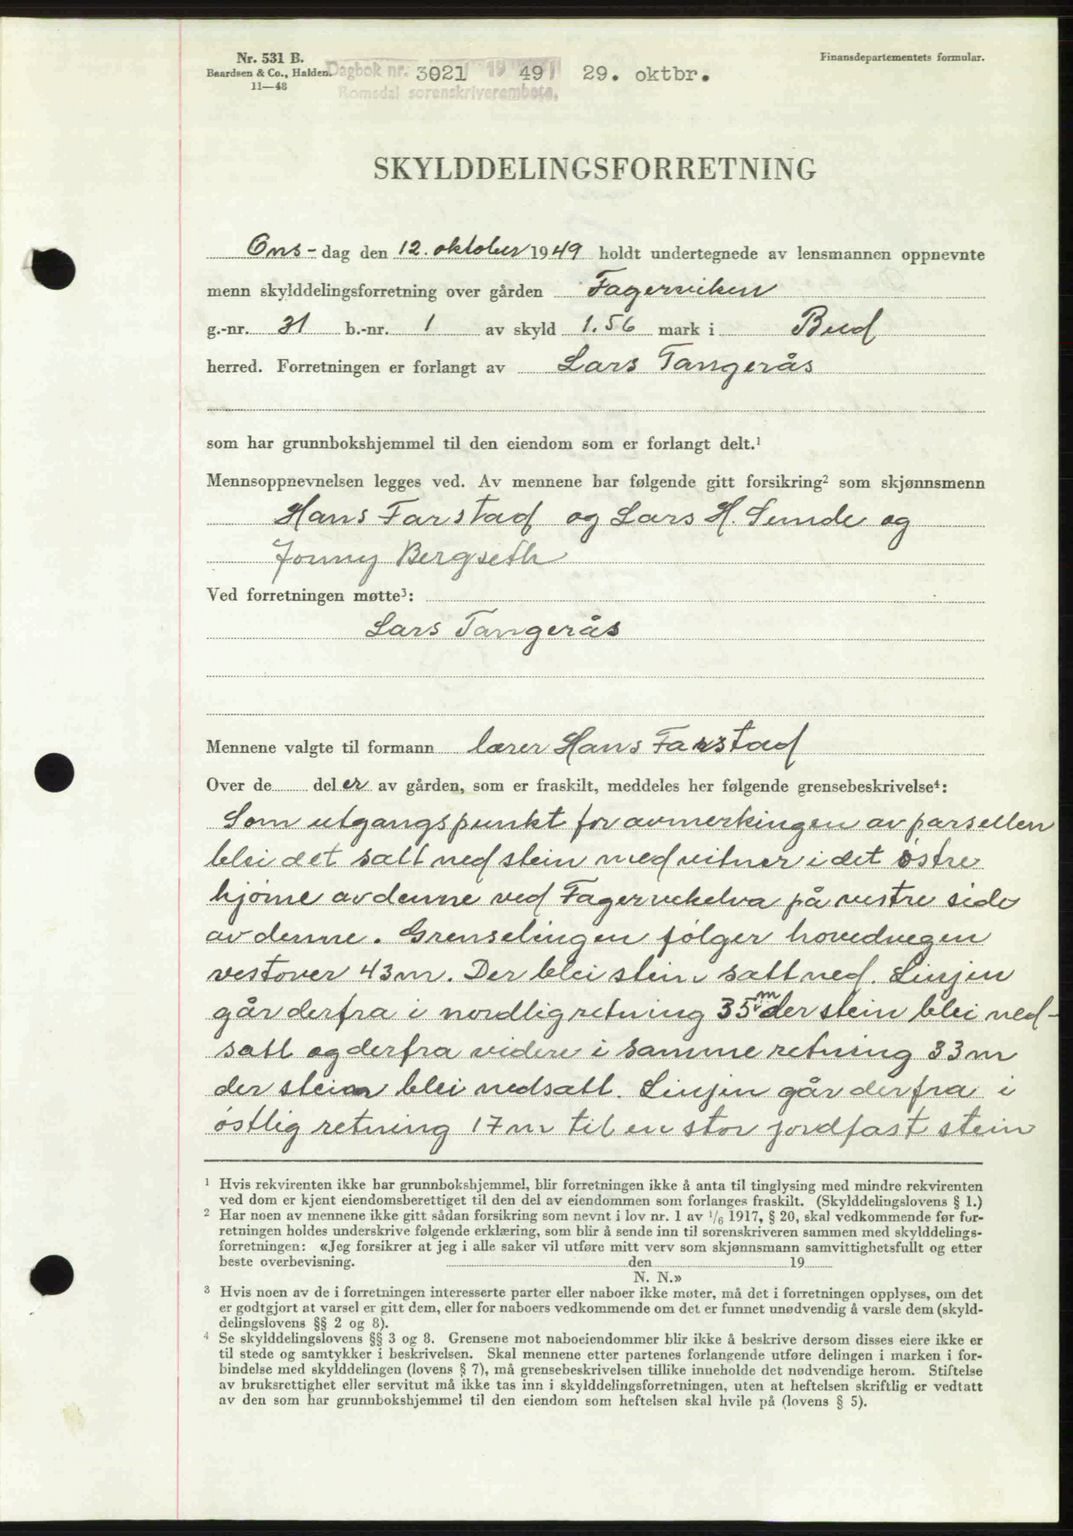 Nr. 531 B.
Baardsen & Co., Halden.
11—48
Dagbok nr. 3021 19 49 29. oktbr.
Romsdal sorenskriverembete.
Finansdepartementets formular.
SKYLDDELINGSFORRETNING
Ons-dag den 12. oktober 1949 holdt undertegnede av lensmannen oppnevnte
menn skylddelingsforretning over gården Fagerviken
g.-nr. 31 b.-nr. 1 av skyld 1.56 mark i Bud
herred. Forretningen er forlangt av Lars Tangerås
som har grunnbokshjemmel til den eiendom som er forlangt delt.¹
Mennsoppnevnelsen legges ved. Av mennene har følgende gitt forsikring² som skjønnsmenn
Hans Farstad og Lars H. Sunde og
Jonny Bergseth
Ved forretningen møtte³:
Lars Tangerås
Mennene valgte til formann lærer Hans Farstad
Over de del er av gården, som er fraskilt, meddeles her følgende grensebeskrivelse⁴:
Som utgangspunkt for avmerkingen av parsellen
blei det satt ned stein med vitner i det østre
hjørne av denne ved Fagervikelva på vestre side
av denne. Grenselinjen følger hovedvegen
vestover 43 m. Der blei stein satt ned. Linjen
går derfra i nordlig retning 35 m der stein blei ned-
satt og derfra videre i samme retning 33 m
der stein blei nedsatt. Linjen går derfra i
østlig retning 17 m til en stor jordfast stein
¹ Hvis rekvirenten ikke har grunnbokshjemmel, blir forretningen ikke å anta til tinglysing med mindre rekvirenten
ved dom er kjent eiendomsberettiget til den del av eiendommen som forlanges fraskilt. (Skylddelingslovens § 1.)
² Har noen av mennene ikke gitt sådan forsikring som nevnt i lov nr. 1 av 1/6 1917, § 20, skal vedkommende før for-
retningen holdes underskrive følgende erklæring, som blir å sende inn til sorenskriveren sammen med skylddelings-
forretningen: «Jeg forsikrer at jeg i alle saker vil utføre mitt verv som skjønnsmann samvittighetsfullt og etter
beste overbevisning. den 19
N. N.»
³ Hvis noen av de i forretningen interesserte parter eller naboer ikke møter, må det i forretningen opplyses, om det
er godtgjort at varsel er gitt dem, eller for naboers vedkommende om det er funnet unødvendig å varsle dem (skyld-
delingslovens §§ 2 og 8).
⁴ Se skylddelingslovens §§ 3 og 8. Grensene mot naboeiendommer blir ikke å beskrive dersom disses eiere ikke er
til stede og samtykker i beskrivelsen. Skal mennene etter partenes forlangende utføre delingen i marken i for-
bindelse med skylddelingen (lovens § 7), må grensebeskrivelsen tillike inneholde det nødvendige herom. Stiftelse
av bruksrettighet eller servitut må ikke tas inn i skylddelingsforretningen, uten at heftelsen skriftlig er vedtatt
av den som har grunnbokshjemmel til den eiendom som heftelsen skal hvile på (lovens § 5).